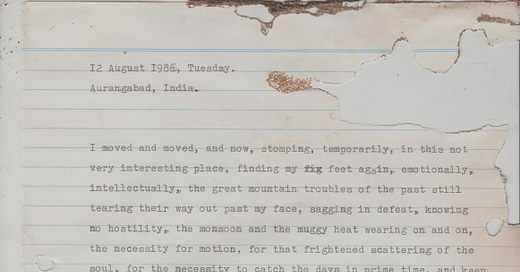 12 August 1986, Tuesday.
Aurangabad, India.
I moved and moved, and now, stomping, temporarily, in this not
very interesting place, finding my fig feet again, emotionally,
intellectually, the great mountain troubles of the past still
tearing their way out past my face, sagging in defeat, knowing
no hostility, the monsoon and the muggy heat wearing on and on,
the necessity for motion, for that frightened scattering of the
soul, for the necessity to catch the days in prime time, and keep